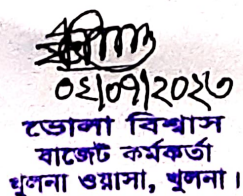 ০২/০৭/২০২৩
ভোলা বিশ্বাস
বাজেট কর্মকর্তা
খুলনা ওয়াসা, খুলনা।